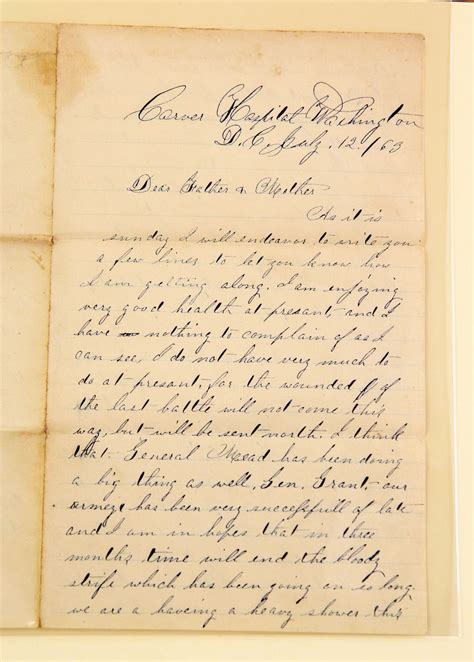 Carver Hospital Washington
D.C. July. 12./63
Dear Father & Mother
As it is
sunday I will endeavor to write you
a few lines to let you know how
I am getting along. I am enjoying
very good health at present, and I
have nothing to complain of as I
can see, I do not have very much to
do at present, for the wounded of
the last battle will not come this
way, but will be sent north. I think
that General Mead has been doing
a big thing as well, Gen. Grant. our
armey has been very successfull of late
and I am in hopes that in three
months time will end the bloody
strife which has been going on so long.
we are a haveing a heavy shower this